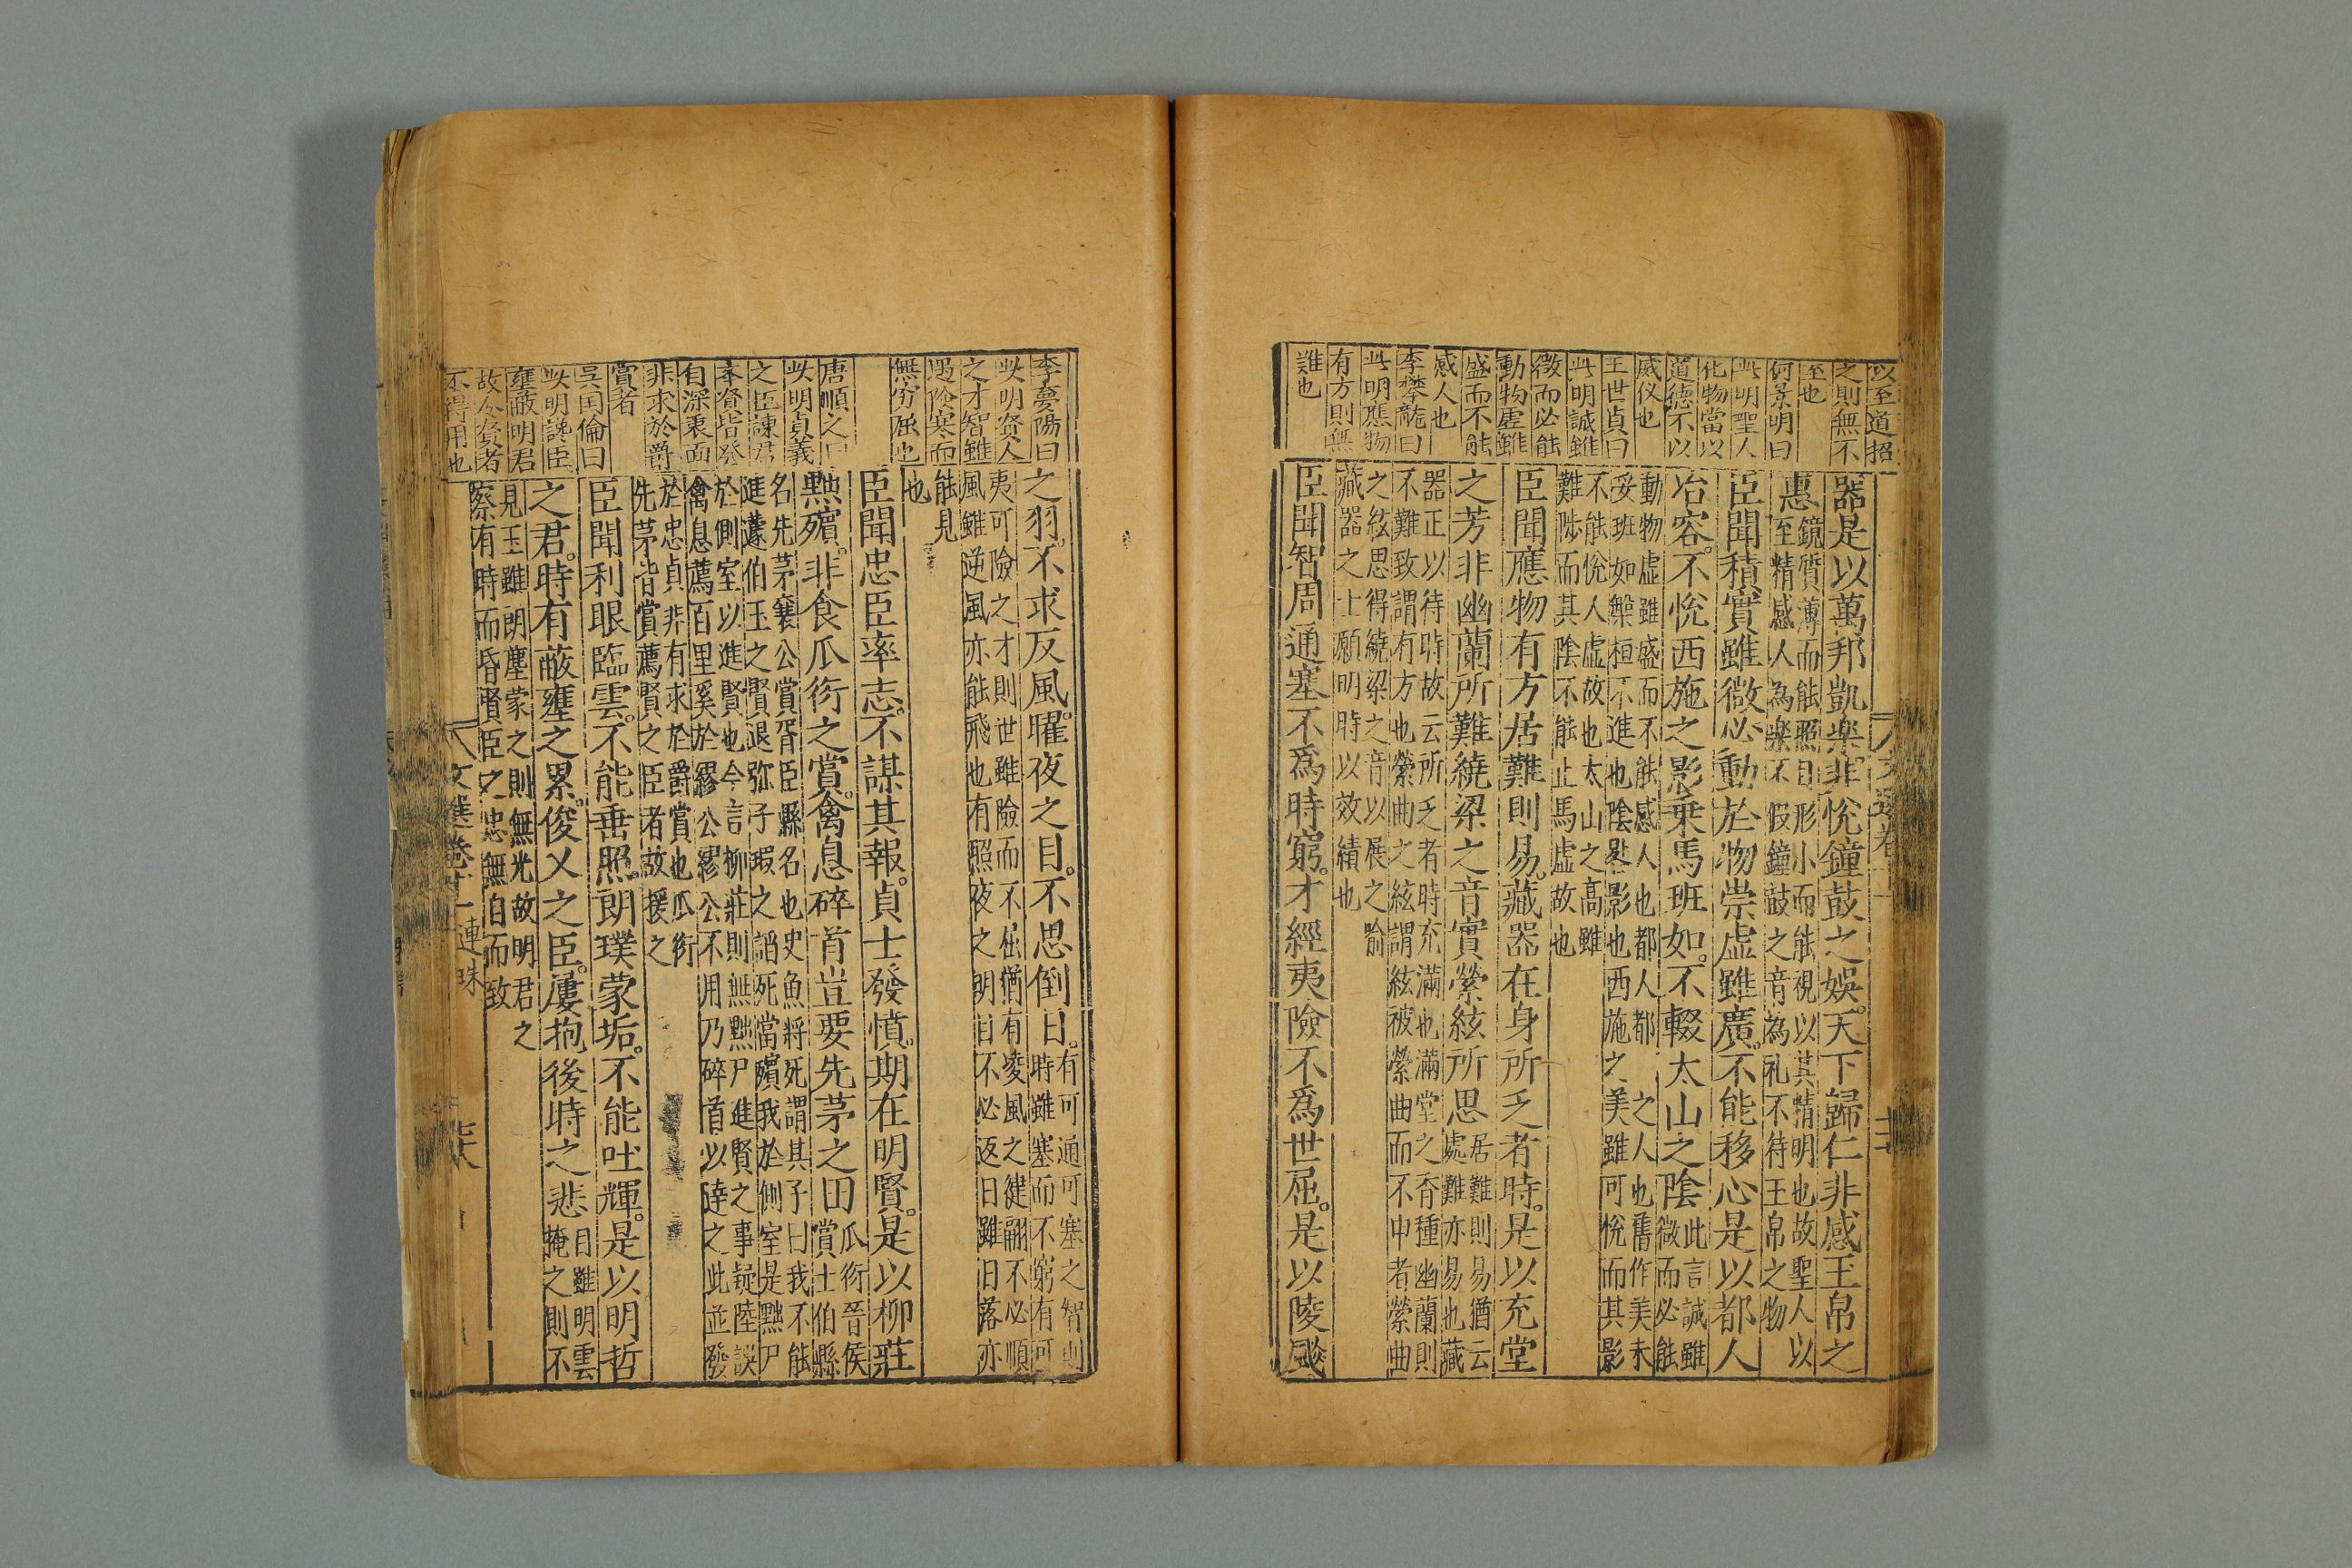 以至道招
之則無不
至也
何景明曰
此明聖人
化物當以
道德不以
威仪也
王世貞曰
此明誠雖
微而必能
動物虛雖
盛而不能
感人也
李攀龍曰
此明應物
有方則無
難也
器是以萬邦凱樂非悅鐘鼓之娛。天下歸仁非感玉帛之
惠
鏡質薄而能照目形小而能視以其精明也故聖人以
至精感人為樂不假鐘鼓之音為礼不待玉帛之物
臣聞積實雖微必動於物崇虛雖廣。不能移心是以都人
冶容。不悅西施之影乗馬班如。不輟太山之陰
此言誠雖
微而必能
動物虛雖盛而不能感人也都人都之人也舊作美未
妥班如槃桓不進也陰影也西施之美雖可悅而其影
不能悅人虛故也太山之高雖
難陟而其陰不能止馬虛故也
臣聞應物有方居難則易。藏器在身所乏者時。是以充堂
之芳非幽蘭所難繞梁之音實縈絃所思
居難則易猶云
處難亦易也藏
器正以待時故云所乏者時充滿也滿堂之香種幽蘭則
不難致謂有方也縈曲之絃謂絃被縈曲而不申者縈曲
之絃思得繞梁之音以展之喻
藏器之士願明時以效績也
臣聞智周通塞不爲時窮。才經夷險不爲世屈。是以陵飈
李夢陽曰
此明賢人
之才智雖
遇險塞而
無窮屈也
唐順之曰
此明貞義
之臣諫君
奉賢皆發
自深衷而
非求於爵
賞者
吴国倫曰
此明讒臣
壅蔽明君
故令賢者
不得用也
之羽。不求反風。曜夜之目。不思倒日。
有可通可塞之智則
時雖塞而不窮有可
夷可險之才則世雖險而不屈猶有凌風之健翮不必順
風雖逆風亦能飛也有照夜之明目不必返日雖日落亦
能見
也
臣聞忠臣率志。不謀其報。貞士發憤。期在明賢。是以柳莊
黜殯。非食瓜衍之賞。禽息碎首豈要先茅之田
瓜衍晉侯
賞士伯縣
名先茅襄公賞胥臣縣名也史魚將死謂其子曰我不能
進蘧伯玉之賢退弥子瑕之謟死當殯我於側室是黜尸
於側室以進賢也今言柳莊則無黜尸進賢之事疑陸誤
禽息薦百里奚於繆公繆公不用乃碎首以達之此並發
於忠貞非有求於爵賞也瓜衍
先茅皆賞薦賢之臣者故援之
臣聞利眼臨雲。不能垂照。朗璞蒙垢。不能吐輝。是以明哲
之君。時有蔽壅之累。俊乂之臣。屢抱後時之悲
目雖明雲
掩之則不
見玉雖朗塵蒙之則無光故明君之
察有時而昏賢臣之忠無自而致
文選卷十一
連珠